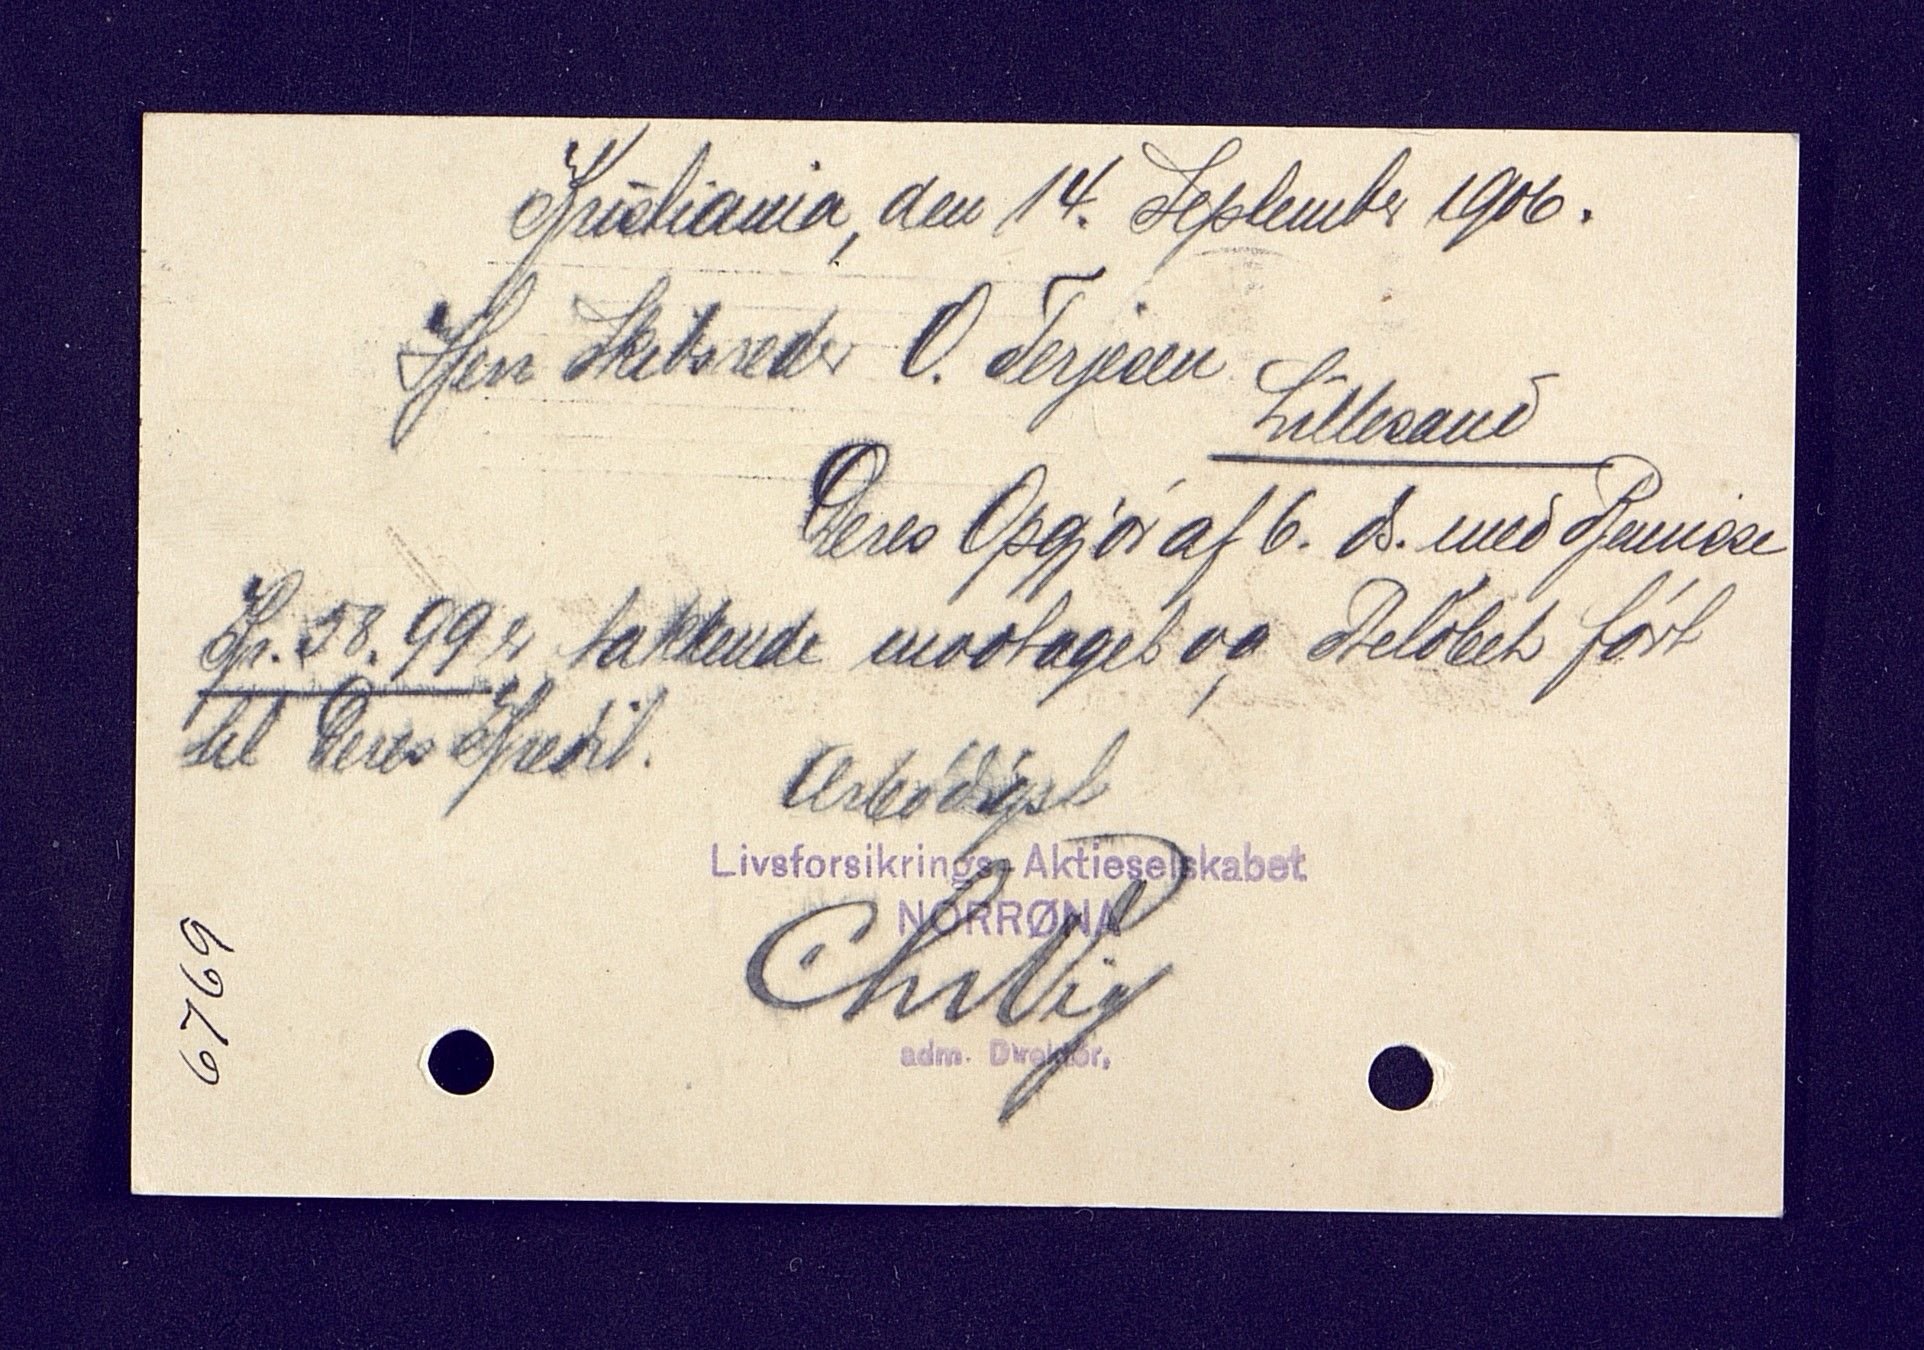 Kristiania, den 14. September 1906.
Herr Skibsreder O. Terjesen
Lillesand
Deres Opgjør af 6. ds. med Remisse
Kr. 58.99 er takkende modtaget og Beløbet ført
til Deres Kredit.
Ærbødigst
Livsforsikrings-Aktieselskabet
NORRØNA
Chr
adm. Direktør.
6769